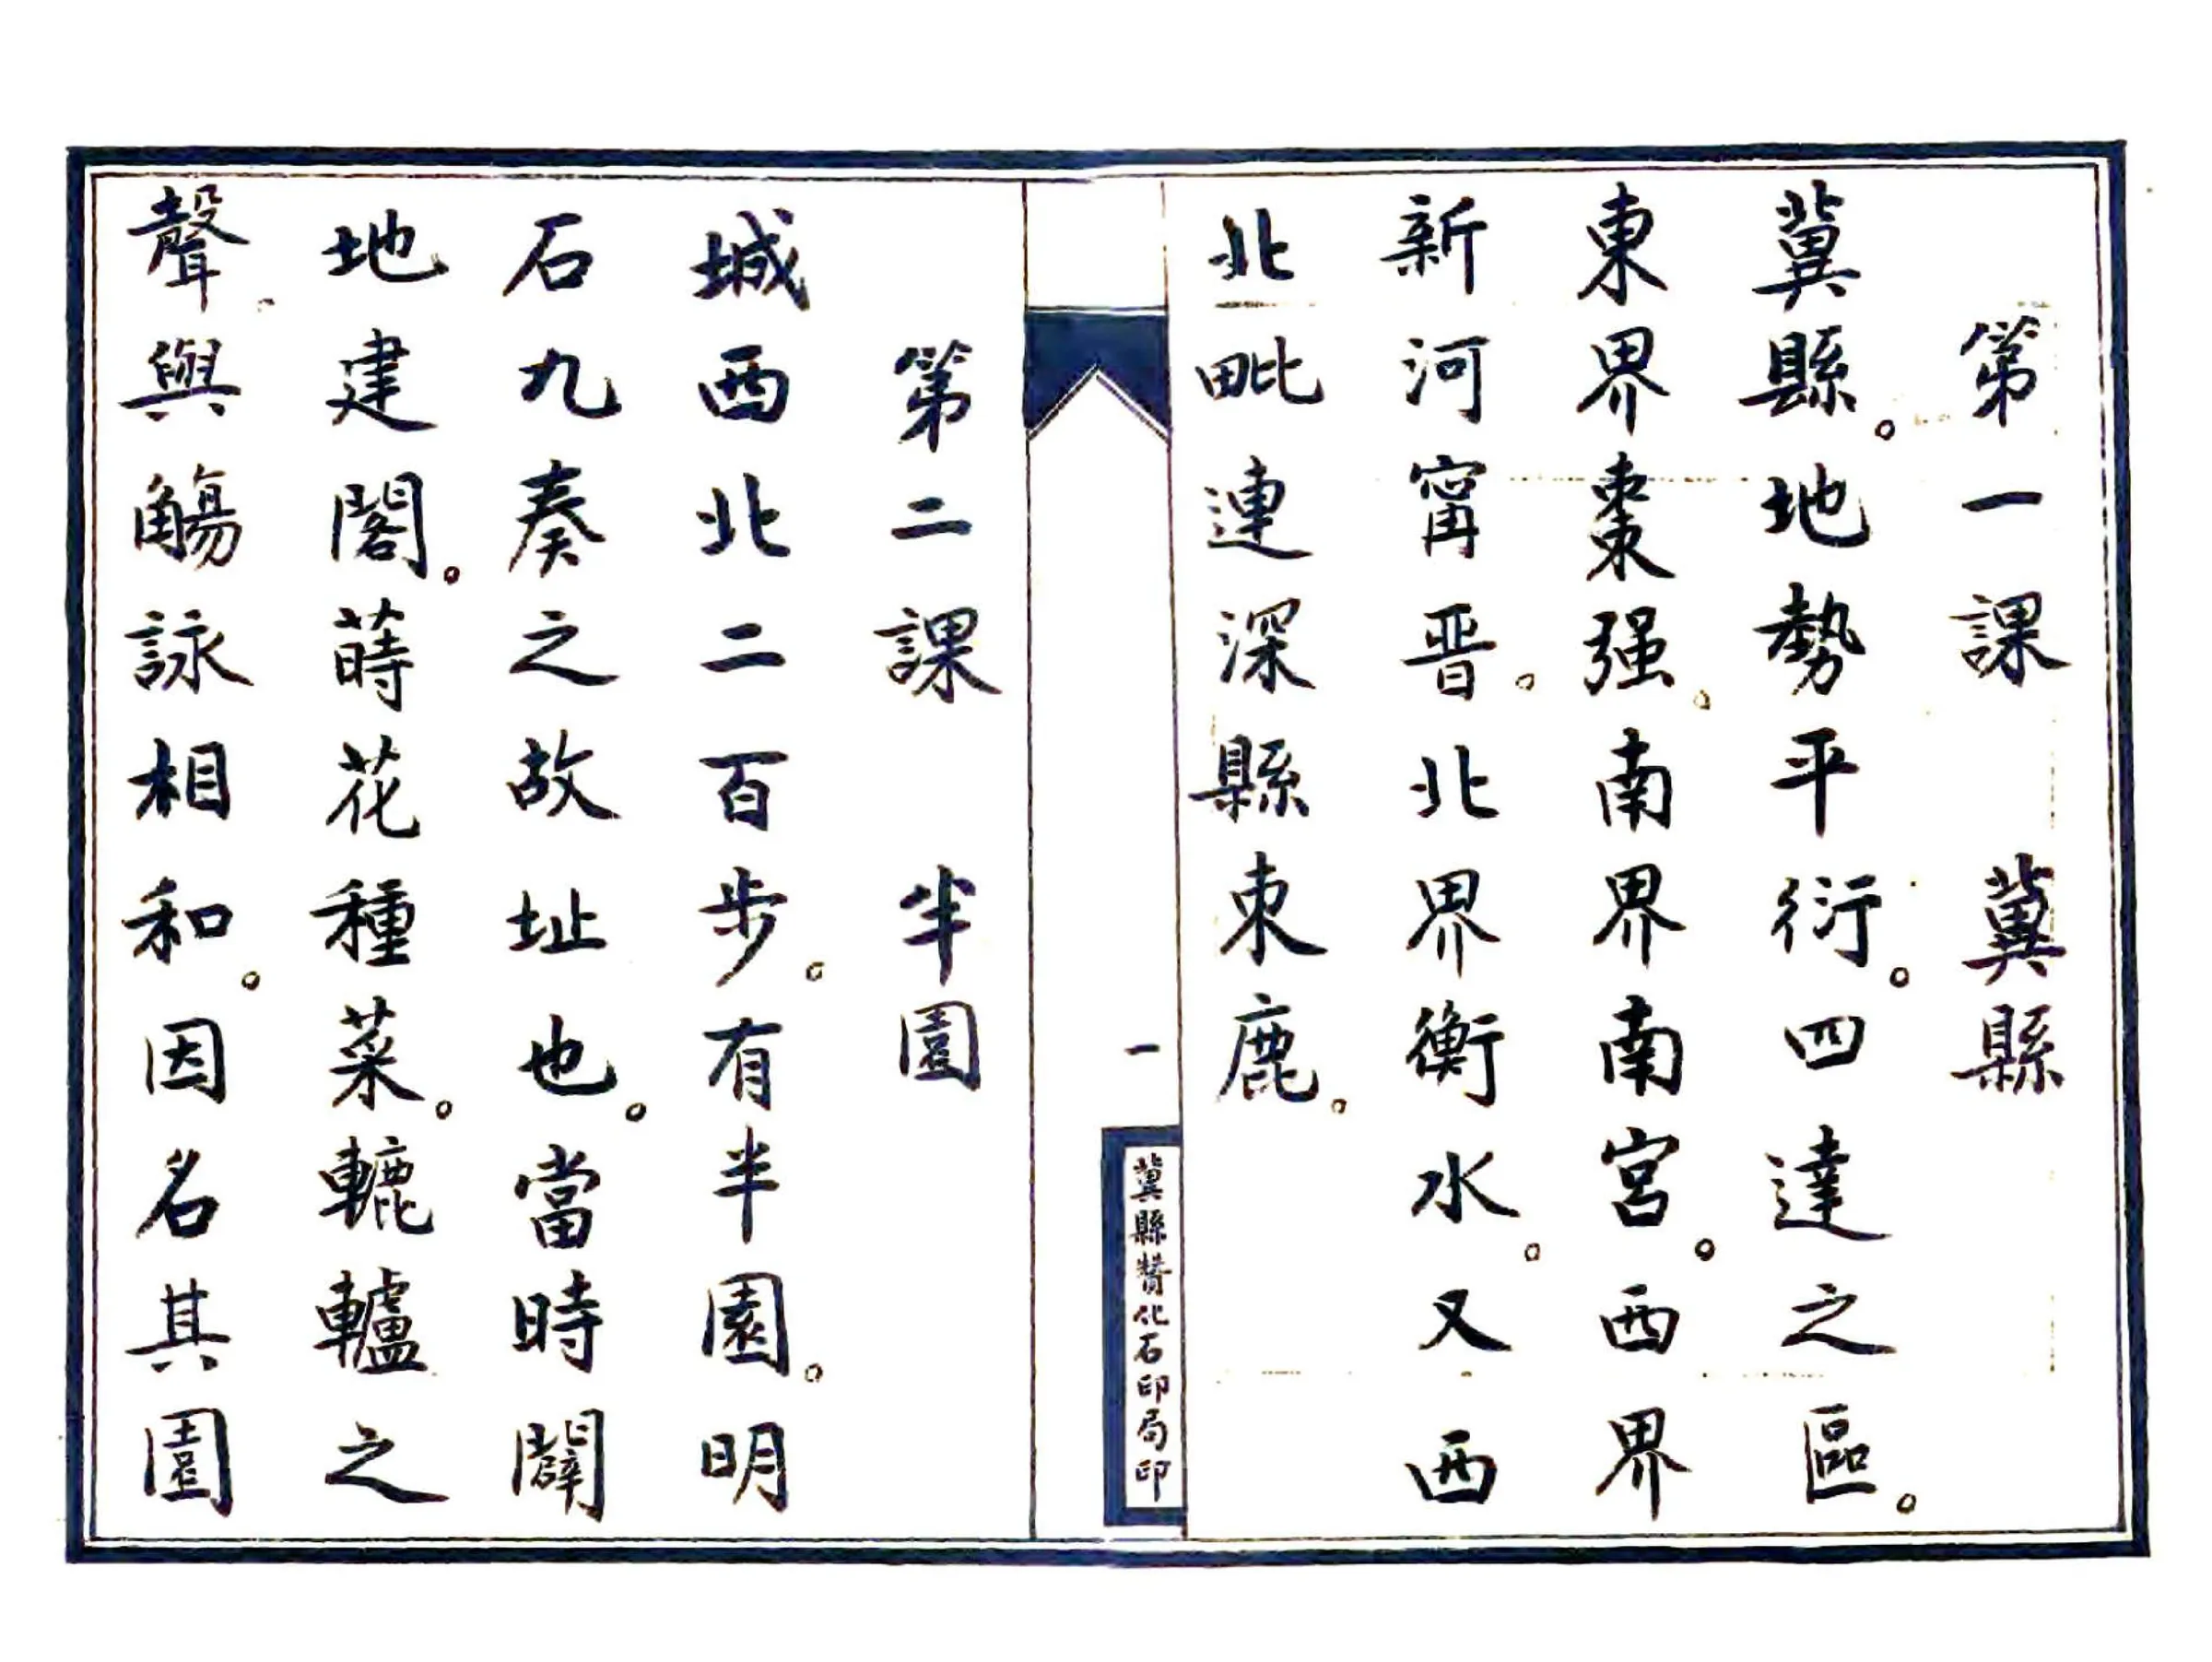 第一課　冀縣
冀縣。地勢平衍。四達之區。
東界棗强。南界南宮。西界
新河甯晋。北界衡水。又西
北毗連深縣束鹿。
一
冀縣贊化石印局印
第二課　半園
城西北二百步。有半園。明
石九奏之故址也。當時闢
地建閣。蒔花種菜。轆轤之
聲。與觴詠相和。因名其園